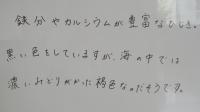 鉄分やカルシウムが豊富なひじき。
黒い色をしていますが、海の中では
濃いみどりがかった褐色なのだそうです。